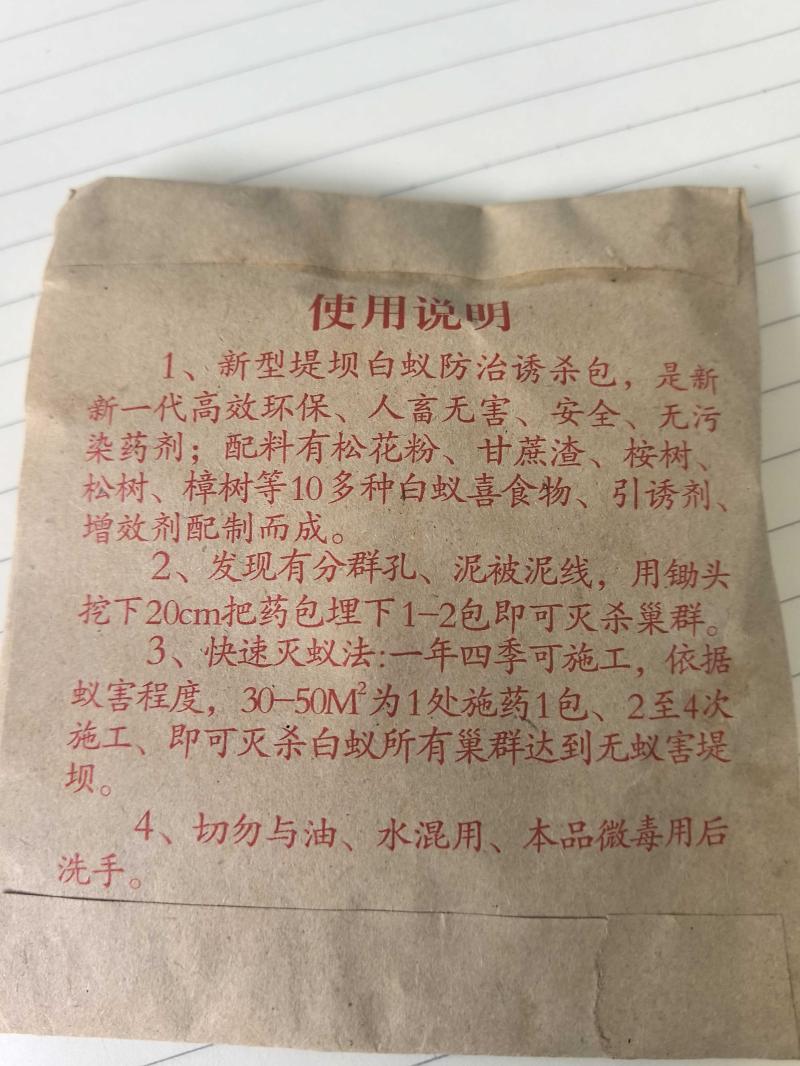 使用说明
1、新型堤坝白蚁防治诱杀包，是新
新一代高效环保、人畜无害、安全、无污
染药剂；配料有松花粉、甘蔗渣、桉树、
松树、樟树等10多种白蚁喜食物、引诱剂、
增效剂配制而成。
2、发现有分群孔、泥被泥线，用锄头
挖下20cm把药包埋下1-2包即可灭杀巢群。
3、快速灭蚁法:一年四季可施工，依据
蚁害程度，30-50M²为1处施药1包、2至4次
施工、即可灭杀白蚁所有巢群达到无蚁害堤
坝。
4、切勿与油、水混用、本品微毒用后
洗手。